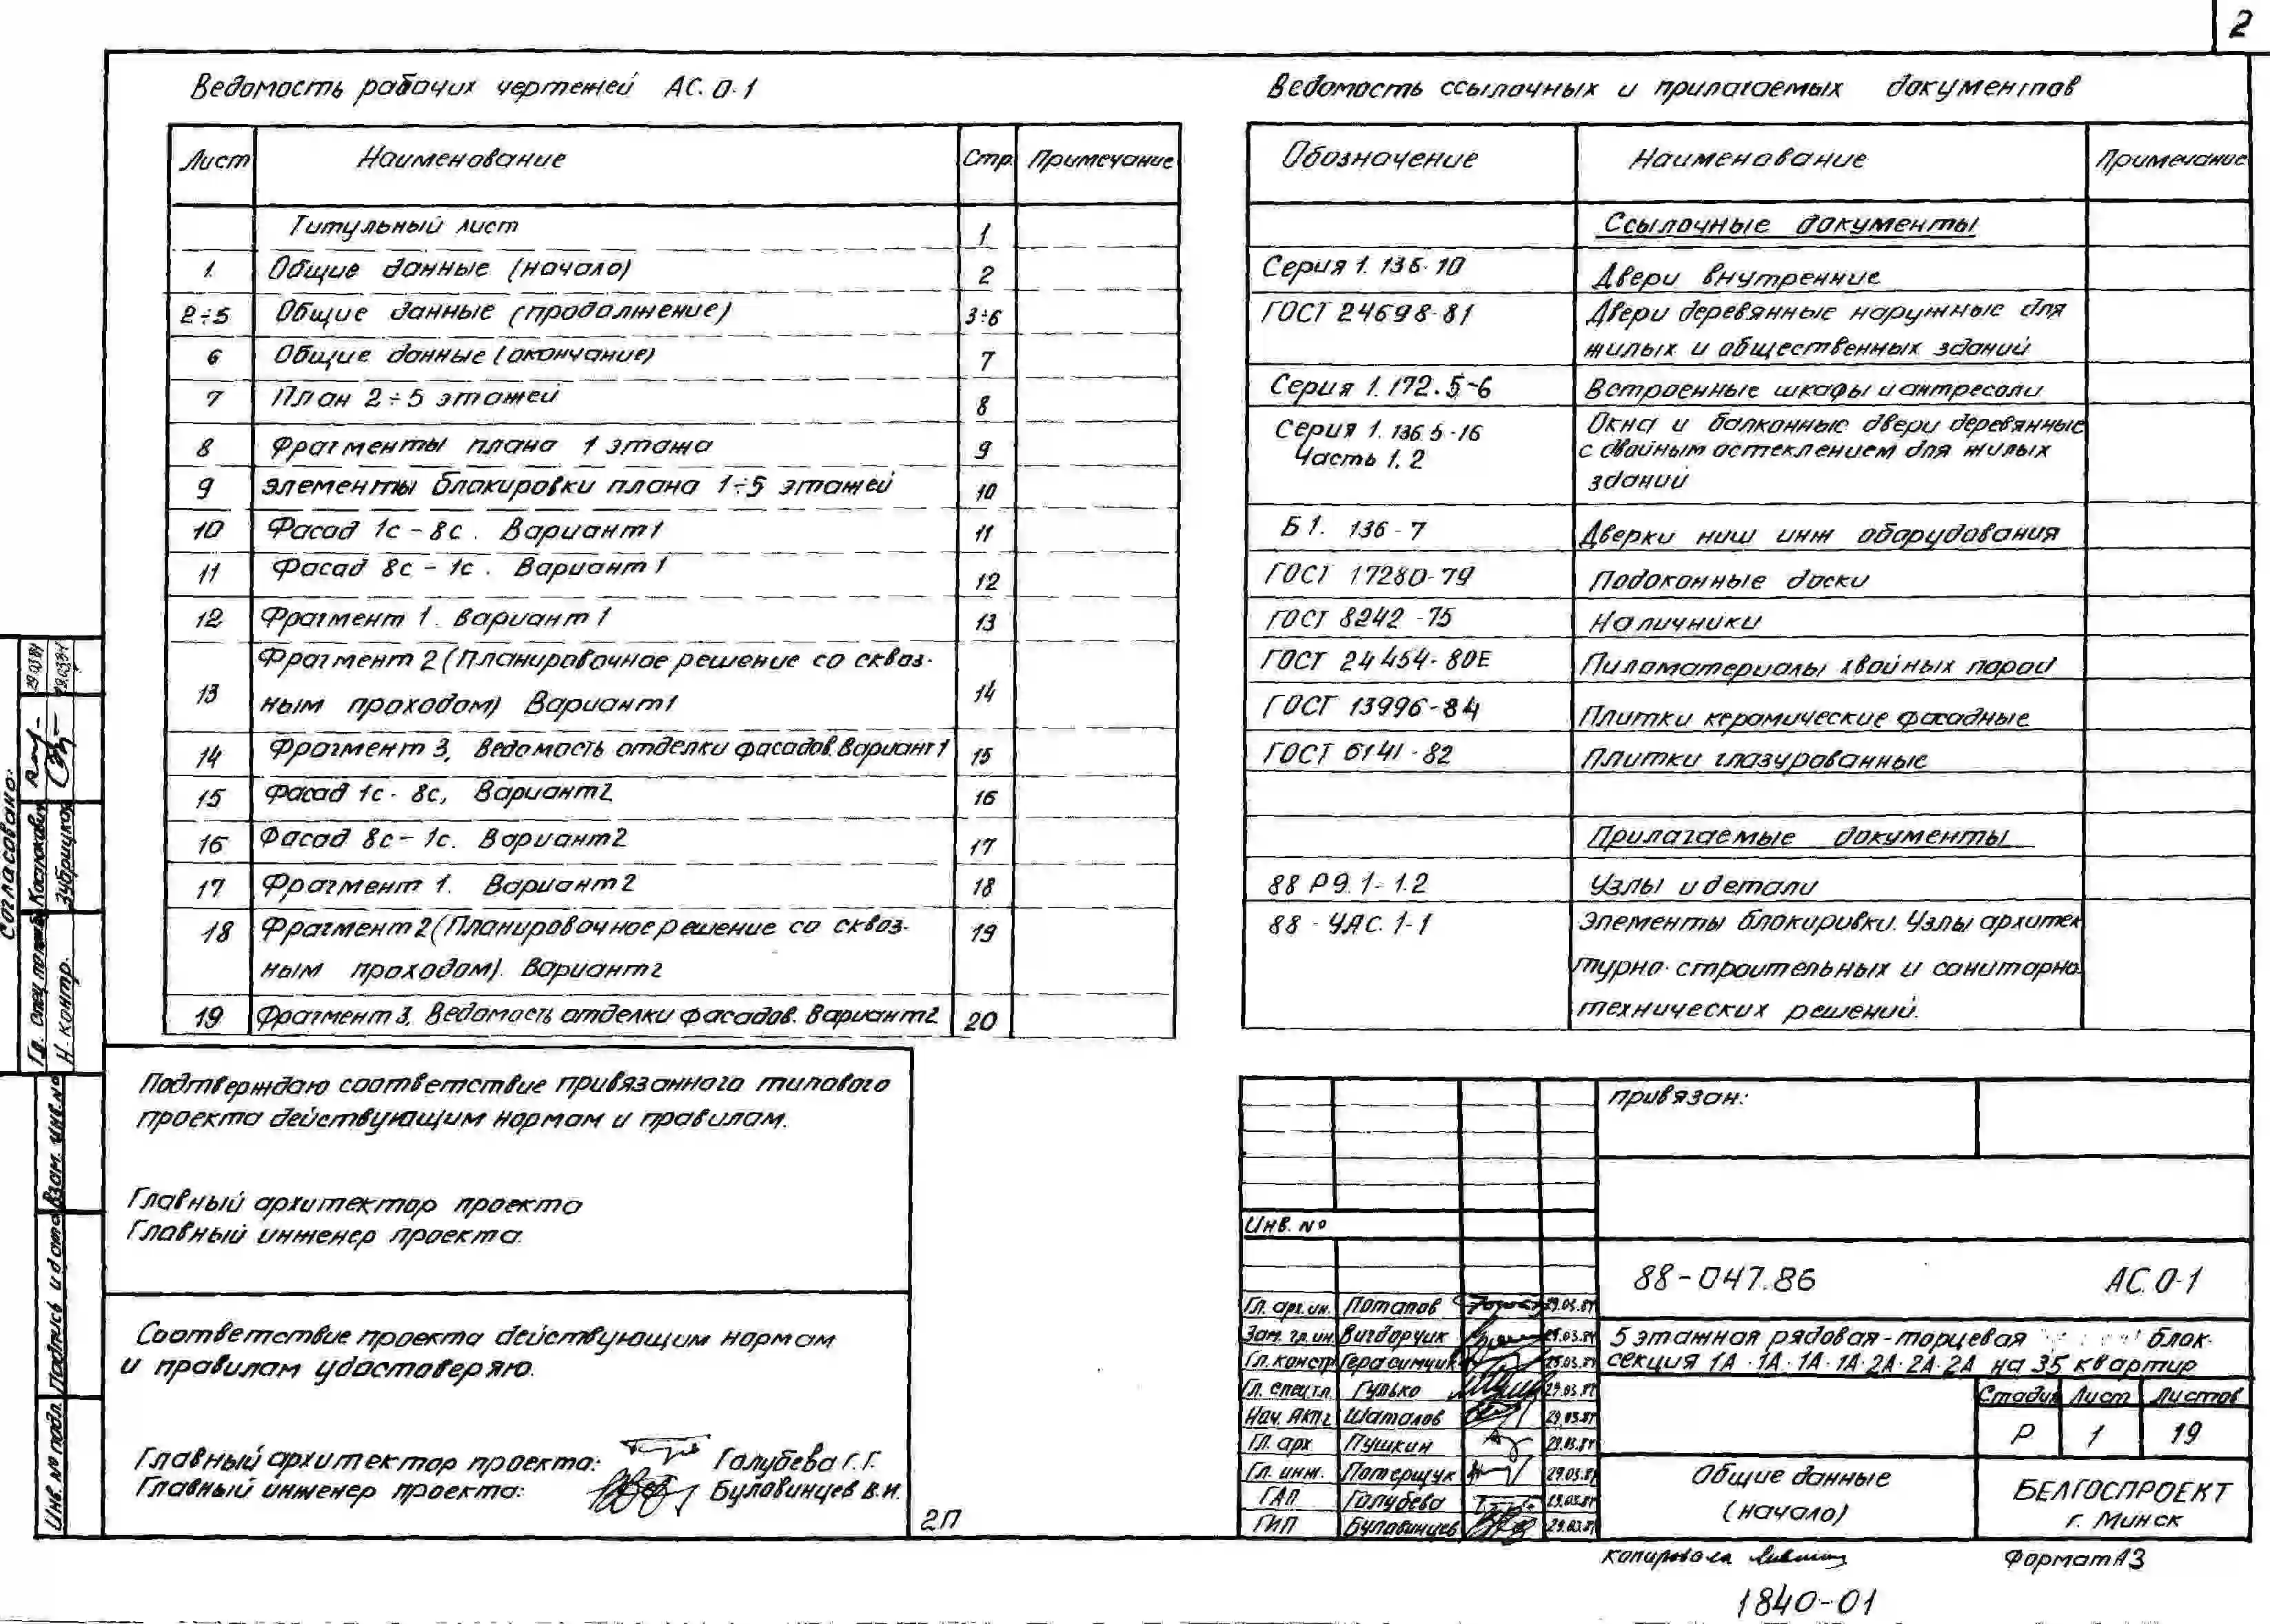 2
Ведомость рабочих чертежей АС.0-1
Лист Наименование Стр. Примечание
Титульный лист 1
1 Общие данные (начало) 2
2÷5 Общие данные (продолжение) 3÷6
6 Общие данные (окончание) 7
7 План 2÷5 этажей 8
8 Фрагменты плана 1 этажа 9
9 Элементы блокировки плана 1÷5 этажей 10
10 Фасад 1с - 8с. Вариант 1 11
11 Фасад 8с - 1с. Вариант 1 12
12 Фрагмент 1. Вариант 1 13
Фрагмент 2 (Планировочное решение со сквоз-
13 ным проходом) Вариант 1 14
14 Фрагмент 3, Ведомость отделки фасадов. Вариант 1 15
15 Фасад 1с - 8с, Вариант 2 16
16 Фасад 8с - 1с. Вариант 2 17
17 Фрагмент 1. Вариант 2 18
18 Фрагмент 2 (Планировочное решение со сквоз- 19
ным проходом). Вариант 2
19 Фрагмент 3, Ведомость отделки фасадов. Вариант 2 20
Ведомость ссылочных и прилагаемых документов
Обозначение Наименование Примечание
Ссылочные документы
Серия 1.136-10 Двери внутренние
ГОСТ 24698-81 Двери деревянные наружные для
жилых и общественных зданий
Серия 1.172.5-6 Встроенные шкафы и антресоли
Серия 1.136.5-16 Окна и балконные двери деревянные
Часть 1.2 с двойным остеклением для жилых
зданий
Б1.136-7 Дверки ниш инж оборудования
ГОСТ 17280-79 Подоконные доски
ГОСТ 8242-75 Наличники
ГОСТ 24454-80Е Пиломатериалы хвойных пород
ГОСТ 13996-84 Плитки керамические фасадные
ГОСТ 6141-82 Плитки глазурованные
Прилагаемые документы
88 Р9.1-1.2 Узлы и детали
88-УАС.1-1 Элементы блокировки. Узлы архитек
турно-строительных и санитарно-
технических решений.
Согласовано:
Гл. спец
Н. контр. Зубрицкая
Взам. инв. №
Подпись и дата
Инв. № подл.
Подтверждаю соответствие привязанного типового
проекта действующим нормам и правилам.
Главный архитектор проекта
Главный инженер проекта.
Соответствие проекта действующим нормам
и правилам удостоверяю.
Главный архитектор проекта: Голубева Г.Г.
Главный инженер проекта: Булавинцев В.И.
2П
привязан:
Инв. №
88-047.86 АС.0-1
Гл. арх. ин. Потапов
Зам. гл. ин. Вигдорчик
Гл. констр Герасимчик
Гл. спец. т.п. Гулько
Нач. АКП2 Шаталов
Гл. арх Пушкин
Гл. инж. Потерщук
ГАП Голубева
ГИП Булавинцев
5 этажная рядовая-торцевая блок-
секция 1А-1А-1А-1А-2А-2А-2А на 35 квартир
Стадия Лист Листов
Р 1 19
Общие данные
(начало)
БЕЛГОСПРОЕКТ
г. Минск
копировала
Формат А3
1840-01